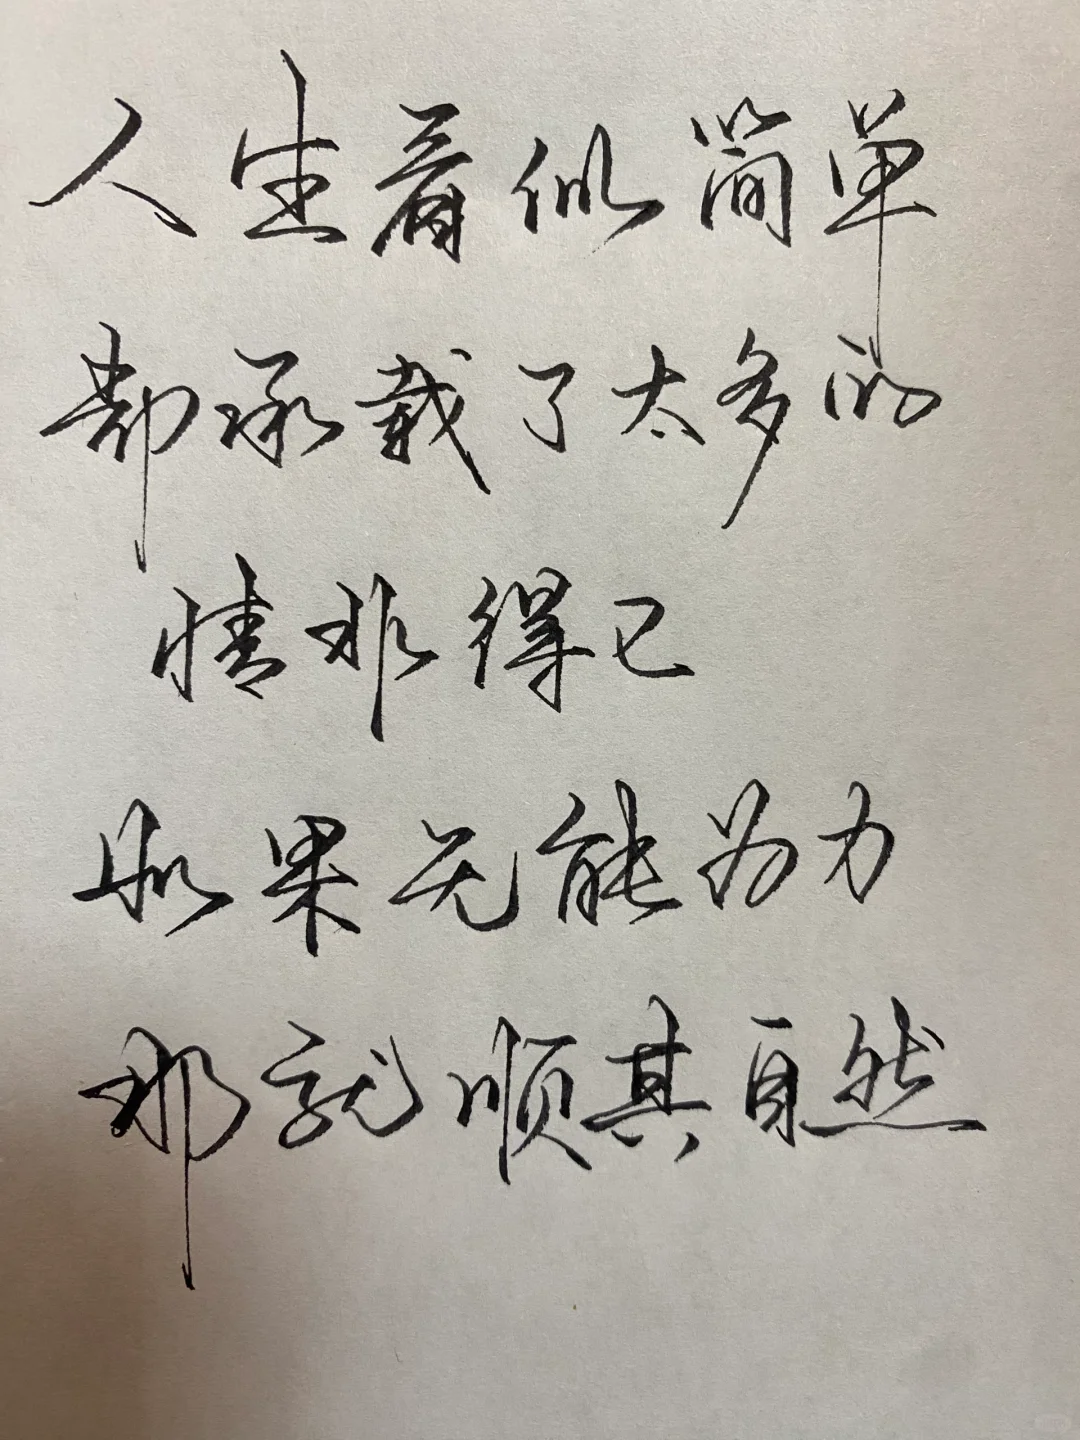 人生看似简单
却承载了太多的
情非得已
如果无能为力
那就顺其自然